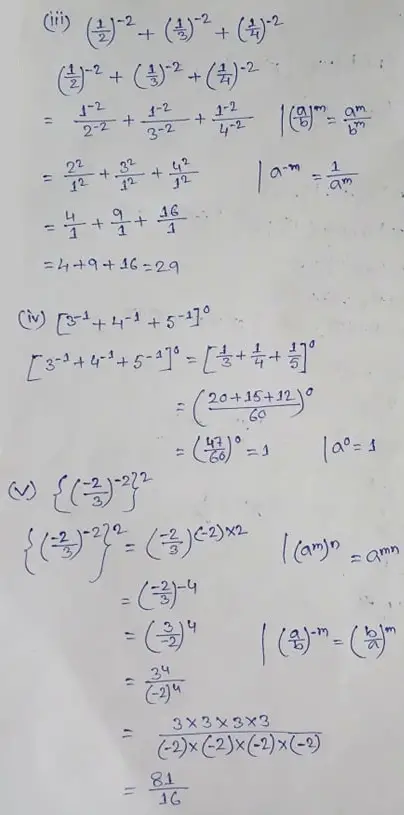 (iii) (1/2)^-2 + (1/3)^-2 + (1/4)^-2
(1/2)^-2 + (1/3)^-2 + (1/4)^-2
= 1^-2/2^-2 + 1^-2/3^-2 + 1^-2/4^-2 | (a/b)^m = a^m/b^m
= 2^2/1^2 + 3^2/1^2 + 4^2/1^2 | a^-m = 1/a^m
= 4/1 + 9/1 + 16/1
= 4+9+16 = 29
(iv) [3^-1 + 4^-1 + 5^-1]^0
[3^-1 + 4^-1 + 5^-1]^0 = [1/3 + 1/4 + 1/5]^0
= (20+15+12/60)^0
= (47/60)^0 = 1 | a^0 = 1
(v) {(-2/3)^-2}^2
{(-2/3)^-2}^2 = (-2/3)^(-2)×2 | (a^m)^n = a^mn
= (-2/3)^-4
= (3/-2)^4 | (a/b)^-m = (b/a)^m
= 3^4/(-2)^4
= 3×3×3×3/(-2)×(-2)×(-2)×(-2)
= 81/16